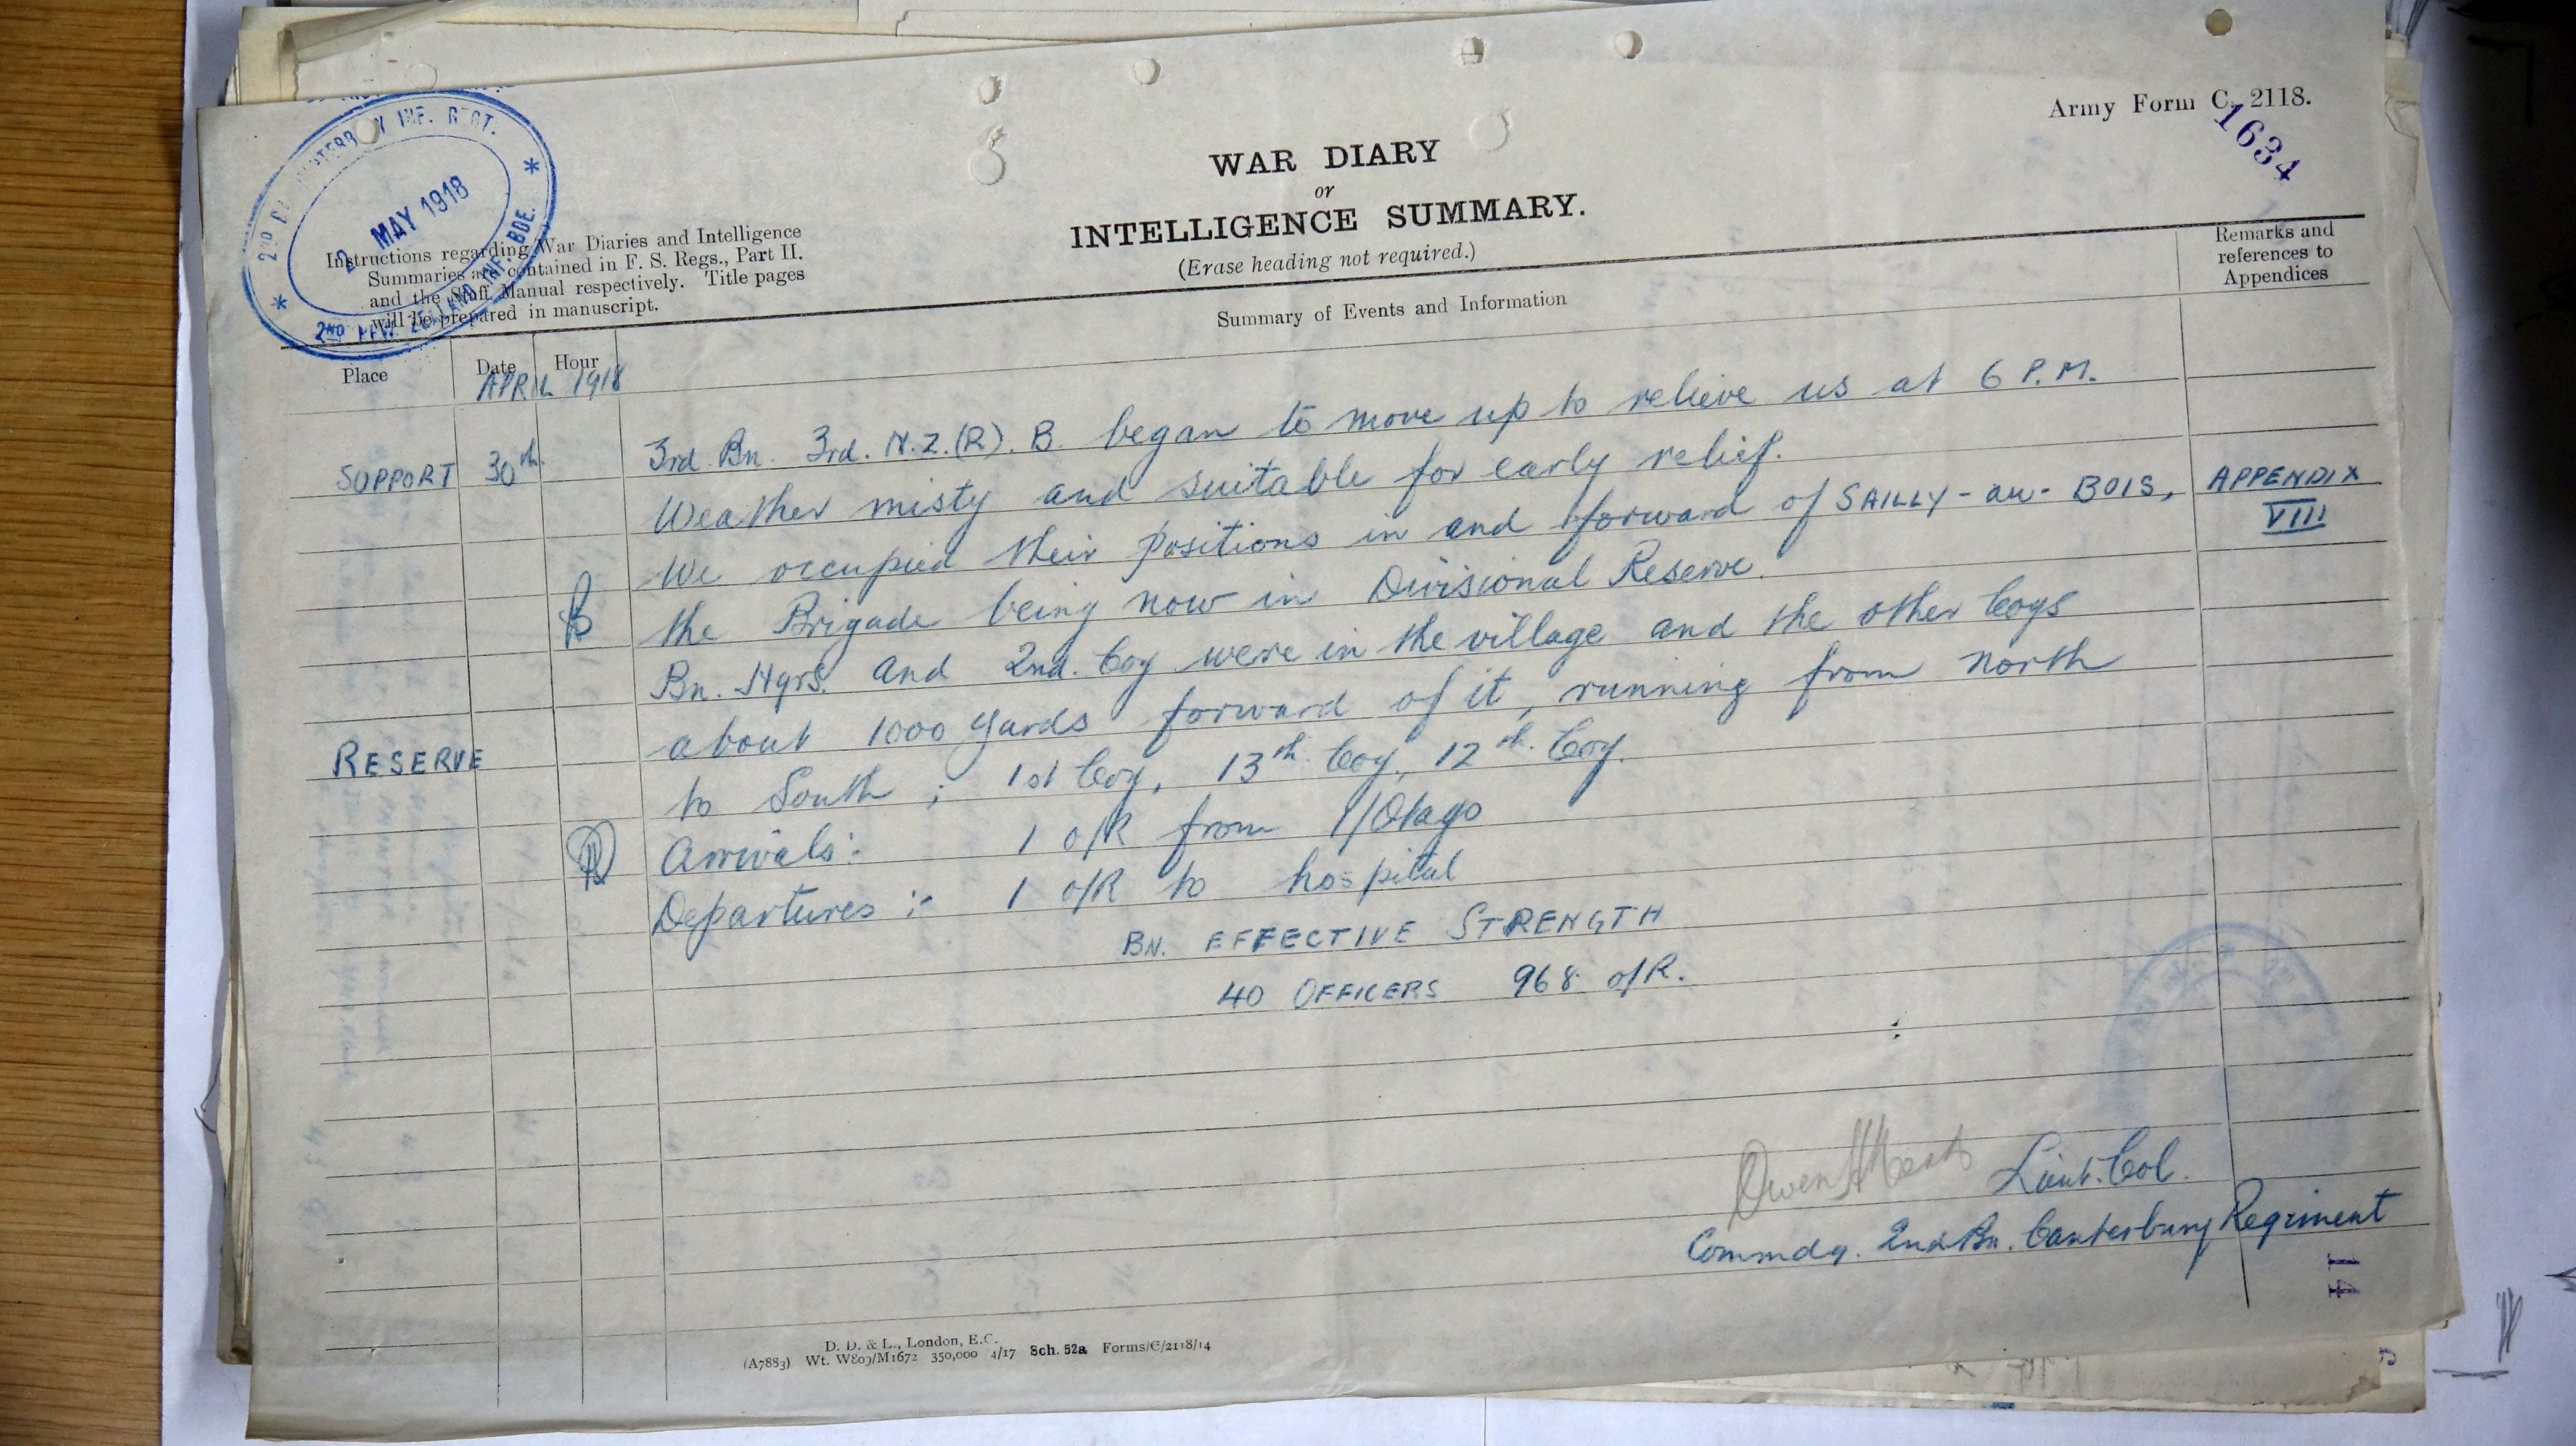 Army Form C. 2118.
1634
WAR DIARY
or
INTELLIGENCE SUMMARY.
(Erase heading not required.)
2ND CANTERBURY INF. REGT.
2 MAY 1918
2ND NEW ZEALAND INF. BDE.
Instructions regarding War Diaries and Intelligence
Summaries are contained in F. S. Regs., Part II.
and the Staff Manual respectively. Title pages
will be prepared in manuscript.
Summary of Events and Information
Remarks and
references to
Appendices
Place Date Hour
APRIL 1918
SUPPORT 30th 3rd. Bn. 3rd. N.Z.(R). B. began to move up to relieve us at 6 P.M.
Weather misty and suitable for early relief.
We occupied their positions in and forward of SAILLY-au-BOIS, APPENDIX VIII
the Brigade being now in Divisional Reserve.
Bn. Hqrs. and 2nd. Coy were in the village and the other Coys
about 1000 yards forward of it, running from north
RESERVE to South ; 1st Coy, 13th. Coy, 12th. Coy.
Arrivals:- 1 o/R from 1/Otago
Departures :- 1 o/R to hospital
BN. EFFECTIVE STRENGTH
40 OFFICERS 968 o/R.
Lieut. Col.
Commdg. 2nd Bn. Canterbury Regiment
14
D. D. & L., London, E.C.
(A7883) Wt. W809/M1672 350,000 4/17 Sch. 52a Forms/C/2118/14